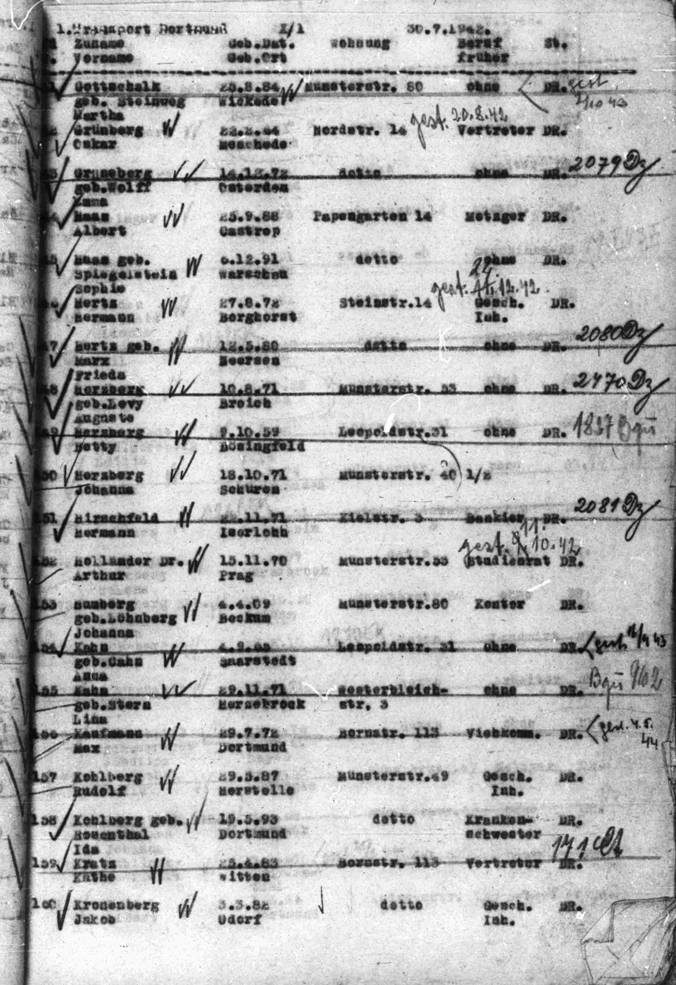 1.Transport Dortmund X/1 30.7.1942.
Zuname Geb.Dat. Wohnung Beruf St.
Vorname Geb.Ort früher
Gottschalk 25.8.84 Munsterstr. 80 ohne DR. gest.
geb. Steinweg Wickede
Martha
Grünberg Nordstr. 14 gest. 20.8.42 Vertreter DR.
Oskar Meschede
Gruneberg 14.12.72 detto ohne DR. 2079 Dz
geb.Wolff
Emma
Haas 25.9.88 Papengarten 14 Metzger DR.
Albert Castrop
Haas geb. 6.12.91 detto ohne DR.
Spiegelstein Warschau
Sophie
Hertz 27.8.72 Steinstr.14 gest. 12.42 Gesch. DR.
Hermann Borghorst Inh.
Hertz geb. 12.5.80 detto ohne DR. 2080 Dz
Marx Neersen
Frieda
Herzberg 10.8.71 Munsterstr. 53 ohne DR. 2470 Dz
geb.Levy Broich
Auguste
Herzberg 9.10.59 Leopoldstr.31 ohne DR.
Betty Bösingfeld
150 Herzberg 18.10.71 Munsterstr. 40 1/2
Johanna Schuren
151 Hirschfeld 22.11.71 Kielstr. 3 Bankier DR. 2081 Dz
Hermann Iserlohn
152 Hollander Dr. 15.11.70 Munsterstr.53 gest. 10.42 Studienrat DR.
Arthur Prag
153 Humberg 4.4.09 Munsterstr.80 Kontor DR.
geb.Löhnberg Beckum
Johanna
154 Kahn Leopoldstr. 31 ohne DR. gest.
geb.Cahn
Anna
155 Kahn 29.11.71 Westerbleich- ohne DR.
geb.Stern Herzebrock str. 3
Lina
156 Kaufmann 29.7.72 Bornstr. 113 Viehkomm. DR. gest. 4.5.
Max Dortmund 44
157 Kohlberg 29.3.87 Munsterstr.49 Gesch. DR.
Rudolf Herstelle Inh.
158 Kohlberg geb. 19.5.93 detto Kranken- DR.
Rosenthal Dortmund schwester
Ida
159 Kratz 25.4.83 Bornstr. 113 Vertreter DR.
Käthe Witten
160 Kronenberg 3.3.82 detto Gesch. DR.
Jakob Udorf Inh.